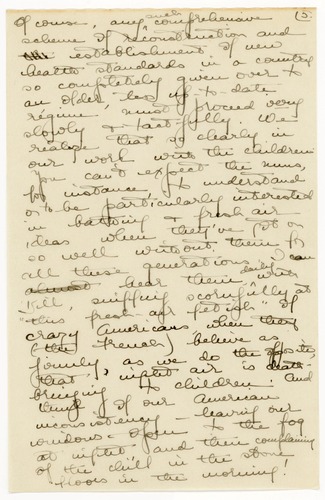 (5.
Of course, any such comprehensive
scheme of reconstruction and
establishment of new
health standards in a country
so completely given over to
an older less up-to-date
régime, must proceed very
slowly & tactfully. We
realize that so clearly in
our work with the children.
You can't expect the nuns,
for instance, to understand
or to be particularly interested
in bathing & fresh air
ideas when they've got on
so well without them for
all these generations. I can
almost hear them, daily, with
sniffing scornfully at
"this fresh-air fetish" of
crazy Americans when they
(the French) believe as
firmly, as we do the opposite,
that night air is death-
bringing to children! And
think of our American
inconsistency - leaving our
windows open to the fog
at night, and then complaining
of the chill in the stone
floors in the morning!